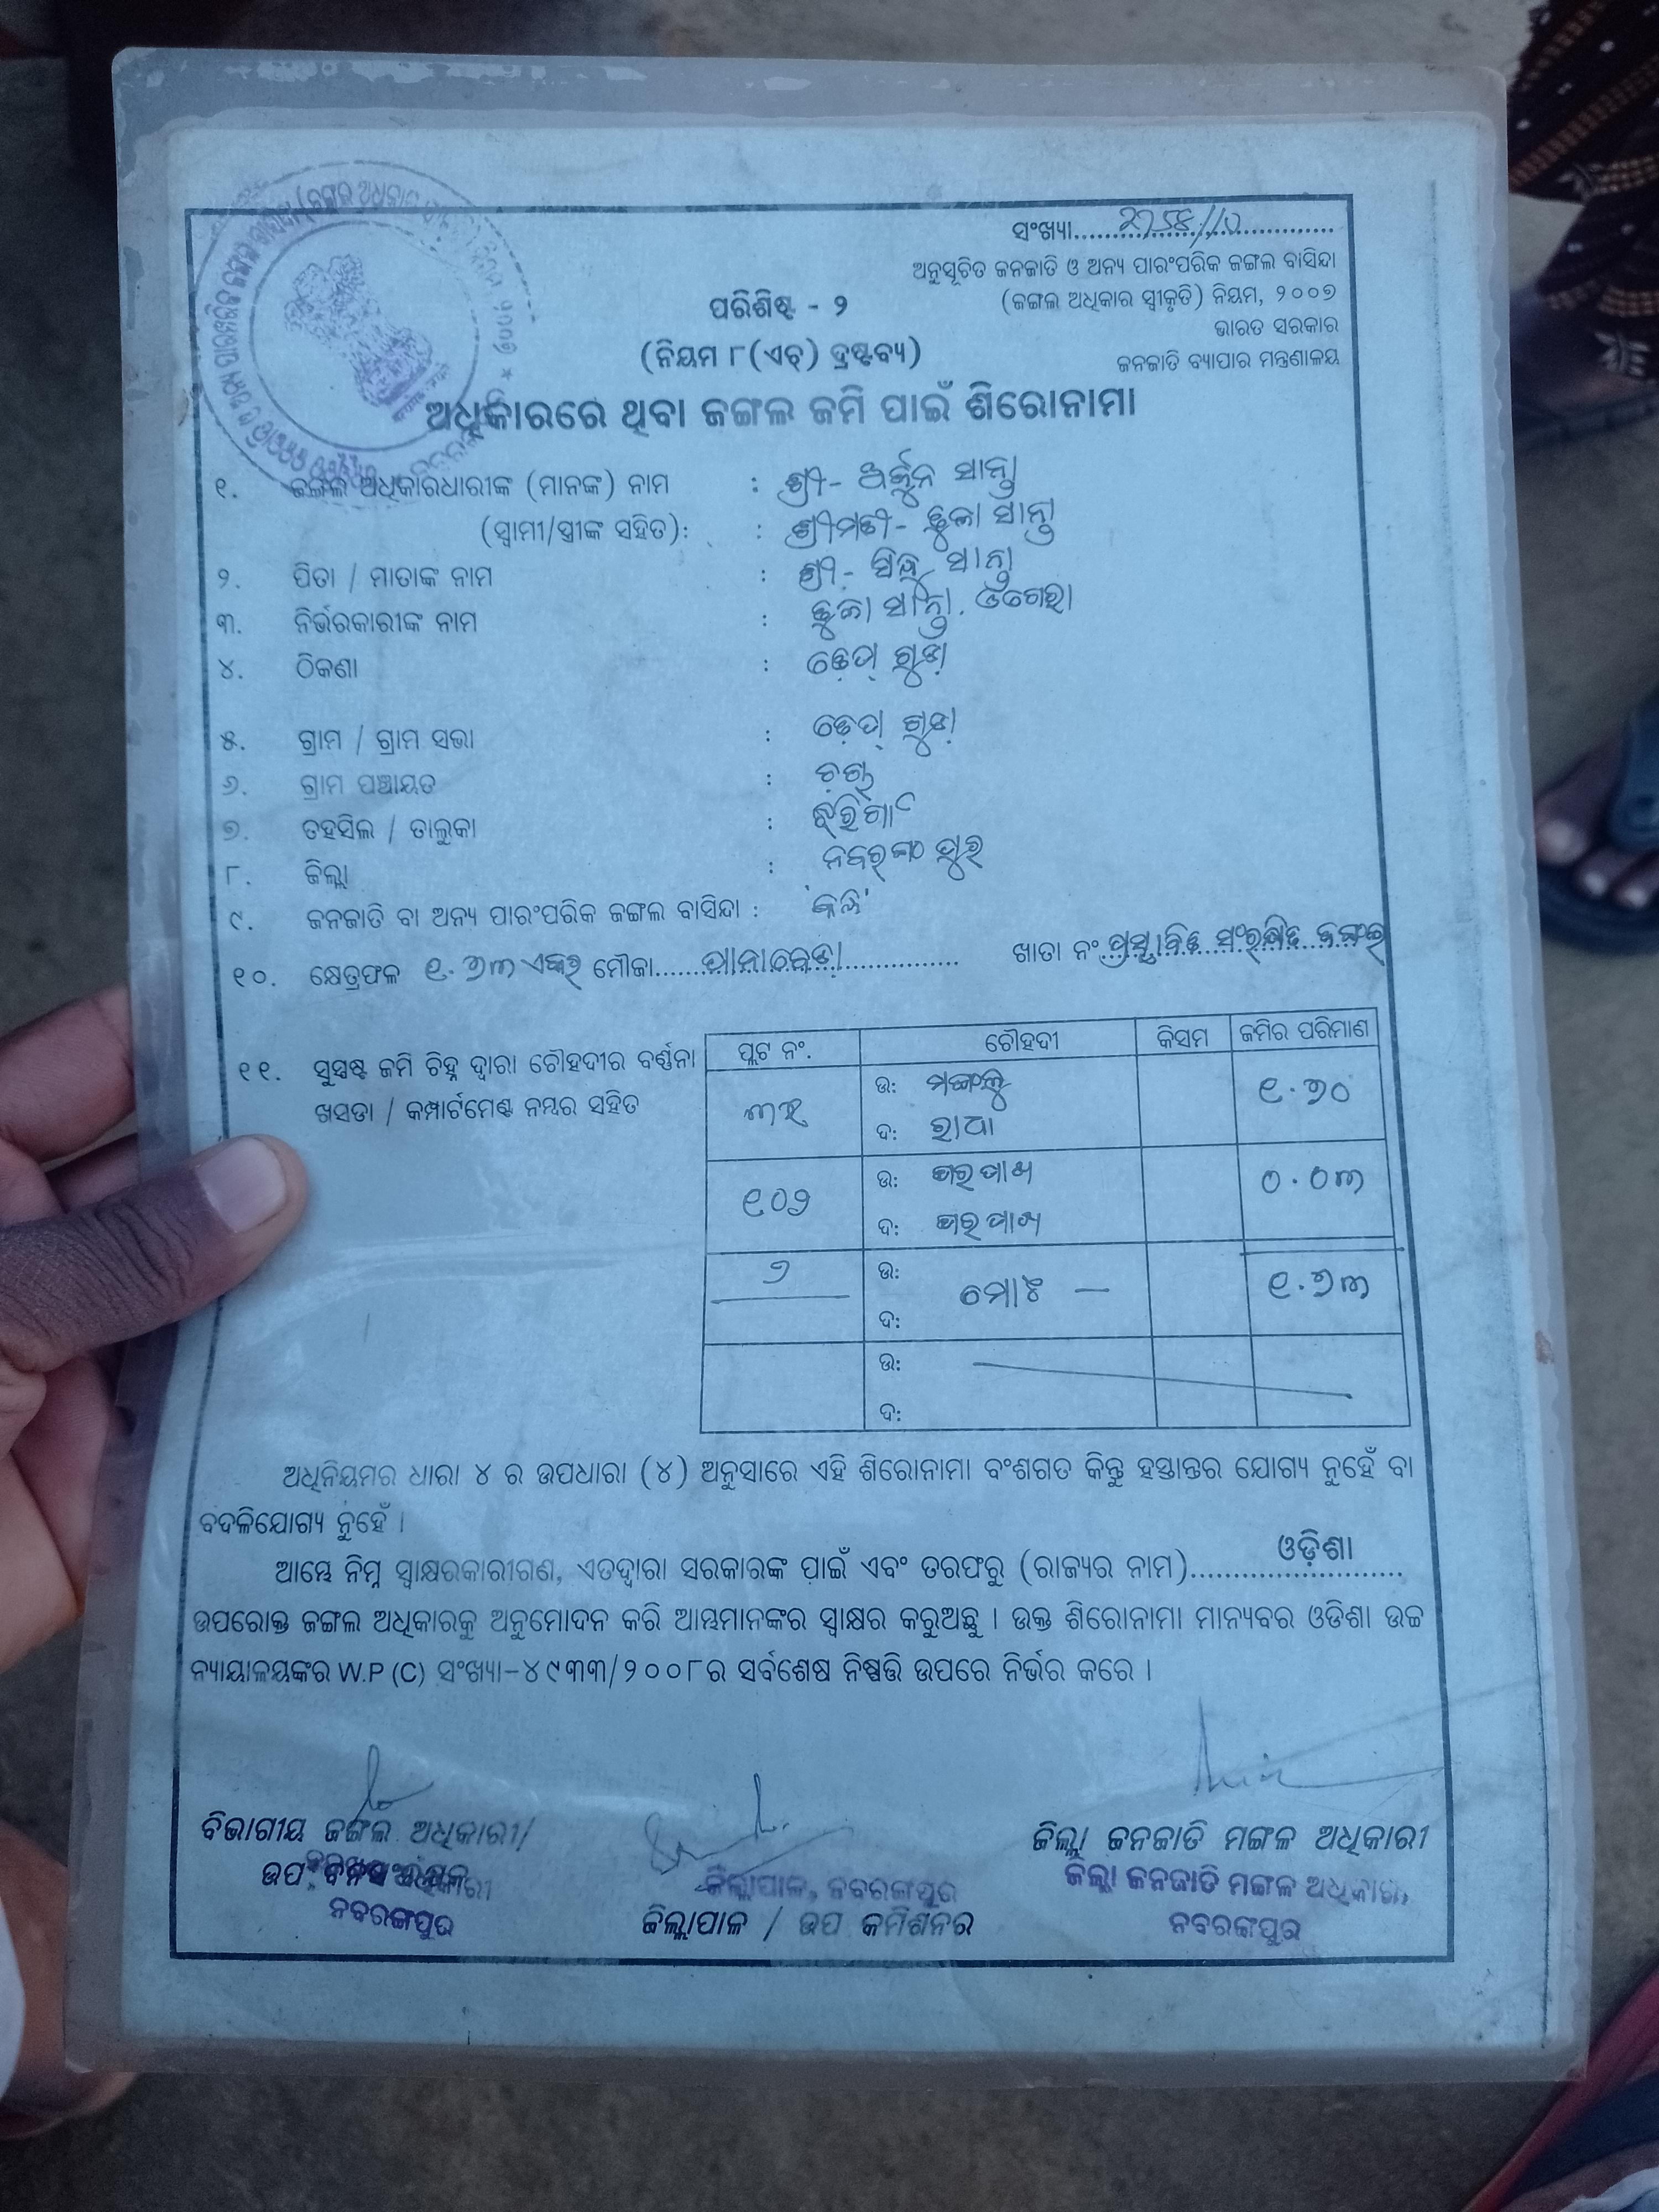 ସଂଖ୍ୟା....................................
ଅନୁସୂଚିତ ଜନଜାତି ଓ ଅନ୍ୟ ପାରଂପରିକ ଜଙ୍ଗଲ ବାସିନ୍ଦା
(ଜଙ୍ଗଲ ଅଧିକାର ସ୍ୱୀକୃତି) ନିୟମ, ୨୦୦୭
ଭାରତ ସରକାର
ଜନଜାତି ବ୍ୟାପାର ମନ୍ତ୍ରଣାଳୟ
ପରିଶିଷ୍ଟ - ୨
(ନିୟମ ୮(ଏଚ୍) ଦ୍ରଷ୍ଟବ୍ୟ)
ଅଧିକାରରେ ଥିବା ଜଙ୍ଗଲ ଜମି ପାଇଁ ଶିରୋନାମା
୧. ଜଙ୍ଗଲ ଅଧିକାରଧାରୀଙ୍କ (ମାନଙ୍କ) ନାମ : ଶ୍ରୀ- ଅର୍ଜୁନ ସାନ୍ତା
(ସ୍ୱାମୀ/ସ୍ତ୍ରୀଙ୍କ ସହିତ): : ଶ୍ରୀମତୀ- ସାନ୍ତା
୨. ପିତା / ମାତାଙ୍କ ନାମ : ଶ୍ରୀ- ସାନ୍ତା
୩. ନିର୍ଭରକାରୀଙ୍କ ନାମ : ସାନ୍ତା. ଓଗେରା
୪. ଠିକଣା : ଗୁଡ଼ା
୫. ଗ୍ରାମ / ଗ୍ରାମ ସଭା : ଗୁଡ଼ା
୬. ଗ୍ରାମ ପଞ୍ଚାୟତ :
୭. ତହସିଲ / ତାଲୁକା : ଝରିଗାଁ
୮. ଜିଲ୍ଲା : ନବରଙ୍ଗପୁର
୯. ଜନଜାତି ବା ଅନ୍ୟ ପାରଂପରିକ ଜଙ୍ଗଲ ବାସିନ୍ଦା :
୧୦. କ୍ଷେତ୍ରଫଳ ୧.୬୩ ଏକର ମୌଜା.... ପାନାବେଡ଼ା ଖାତା ନଂ ପ୍ରସ୍ତାବିତ ସଂରକ୍ଷିତ ଜଙ୍ଗଲ
୧୧. ସୁସ୍ପଷ୍ଟ ଜମି ଚିହ୍ନ ଦ୍ୱାରା ଚୌହଦୀର ବର୍ଣ୍ଣନା
ଖସଡା / କମ୍ପାର୍ଟମେଣ୍ଟ ନମ୍ବର ସହିତ
ପ୍ଲଟ ନଂ. ଚୌହଦୀ କିସମ ଜମିର ପରିମାଣ
ଉ: ମଙ୍ଗଳୁ ୧.୬୦
ଦ: ରାଧା
୧୦୨ ଉ: ୦.୦୩
ଦ:
୨ ଉ: ମୋଟ — ୧.୬୩
ଦ:
ଉ:
ଦ:
ଅଧିନିୟମର ଧାରା ୪ ର ଉପଧାରା (୪) ଅନୁସାରେ ଏହି ଶିରୋନାମା ବଂଶଗତ କିନ୍ତୁ ହସ୍ତାନ୍ତର ଯୋଗ୍ୟ ନୁହେଁ ବା
ବଦଳିଯୋଗ୍ୟ ନୁହେଁ ।
ଆମ୍ଭେ ନିମ୍ନ ସ୍ୱାକ୍ଷରକାରୀଗଣ, ଏତଦ୍ୱାରା ସରକାରଙ୍କ ପାଇଁ ଏବଂ ତରଫରୁ (ରାଜ୍ୟର ନାମ)......ଓଡ଼ିଶା......
ଉପରୋକ୍ତ ଜଙ୍ଗଲ ଅଧିକାରକୁ ଅନୁମୋଦନ କରି ଆମ୍ଭମାନଙ୍କର ସ୍ୱାକ୍ଷର କରୁଅଛୁ । ଉକ୍ତ ଶିରୋନାମା ମାନ୍ୟବର ଓଡିଶା ଉଚ୍ଚ
ନ୍ୟାୟାଳୟଙ୍କର W.P (C) ସଂଖ୍ୟା-୪୯୩୩/୨୦୦୮ର ସର୍ବଶେଷ ନିଷ୍ପତ୍ତି ଉପରେ ନିର୍ଭର କରେ ।
ବିଭାଗୀୟ ଜଙ୍ଗଲ ଅଧିକାରୀ/
ଉପ ବନସଂରକ୍ଷକ
ନବରଙ୍ଗପୁର
ଜିଲ୍ଲାପାଳ, ନବରଙ୍ଗପୁର
ଜିଲ୍ଲାପାଳ / ଉପ କମିଶନର
ଜିଲ୍ଲା ଜନଜାତି ମଙ୍ଗଳ ଅଧିକାରୀ
ଜିଲ୍ଲା ଜନଜାତି ମଙ୍ଗଳ ଅଧିକାରୀ,
ନବରଙ୍ଗପୁର